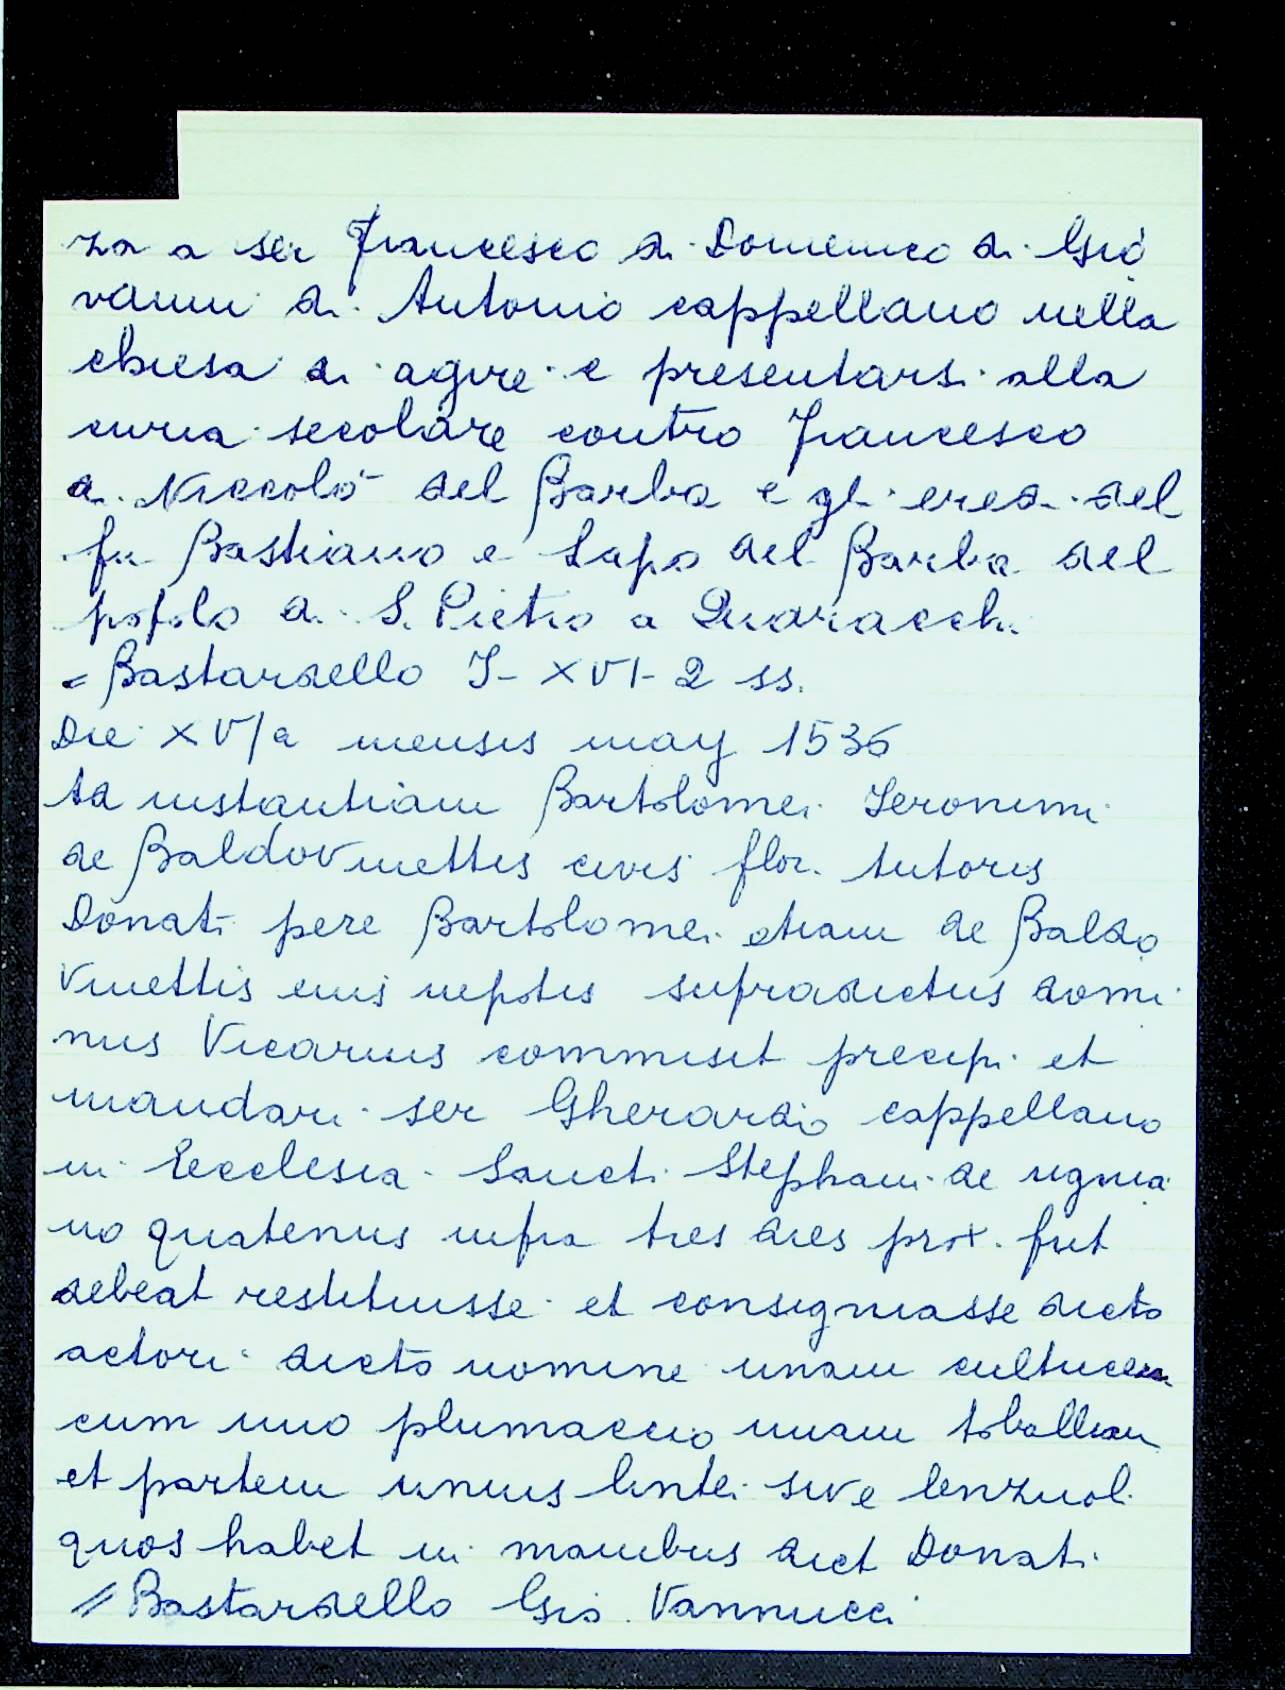 za a ser Francesco di Domenico di Gio
vanni di Antonio cappellano nella
chiesa di agire e presentarsi alla
curia secolare contro Francesco
di Niccolò del Barba e gli eredi del
fu Bastiano e Lapo del Barba del
popolo di S. Pietro a Quaracchi
= Bastardello I - XVI - 2 ss.
Die XVIa mensis may 1536
Ad instantiam Bartolomei Ieronimi
de Baldovinettis civis flor. tutoris
Donati pere Bartolomei etiam de Baldo
vinettis eius nepotis supradictus domi
nus Vicarius commisit precipi et
mandari ser Gherardo cappellano
in Ecclesia Sancti Stephani de ugnia
no quatenus infra tres dies prox. fut
debeat restituisse et consigniasse dicto
actori dicto nomine unam cultricem
cum uno plumaccio unam toballiam
et partem unius lintei sive lenzuoli
quos habet in manibus dict Donati
// Bastardello Gio. Vannucci